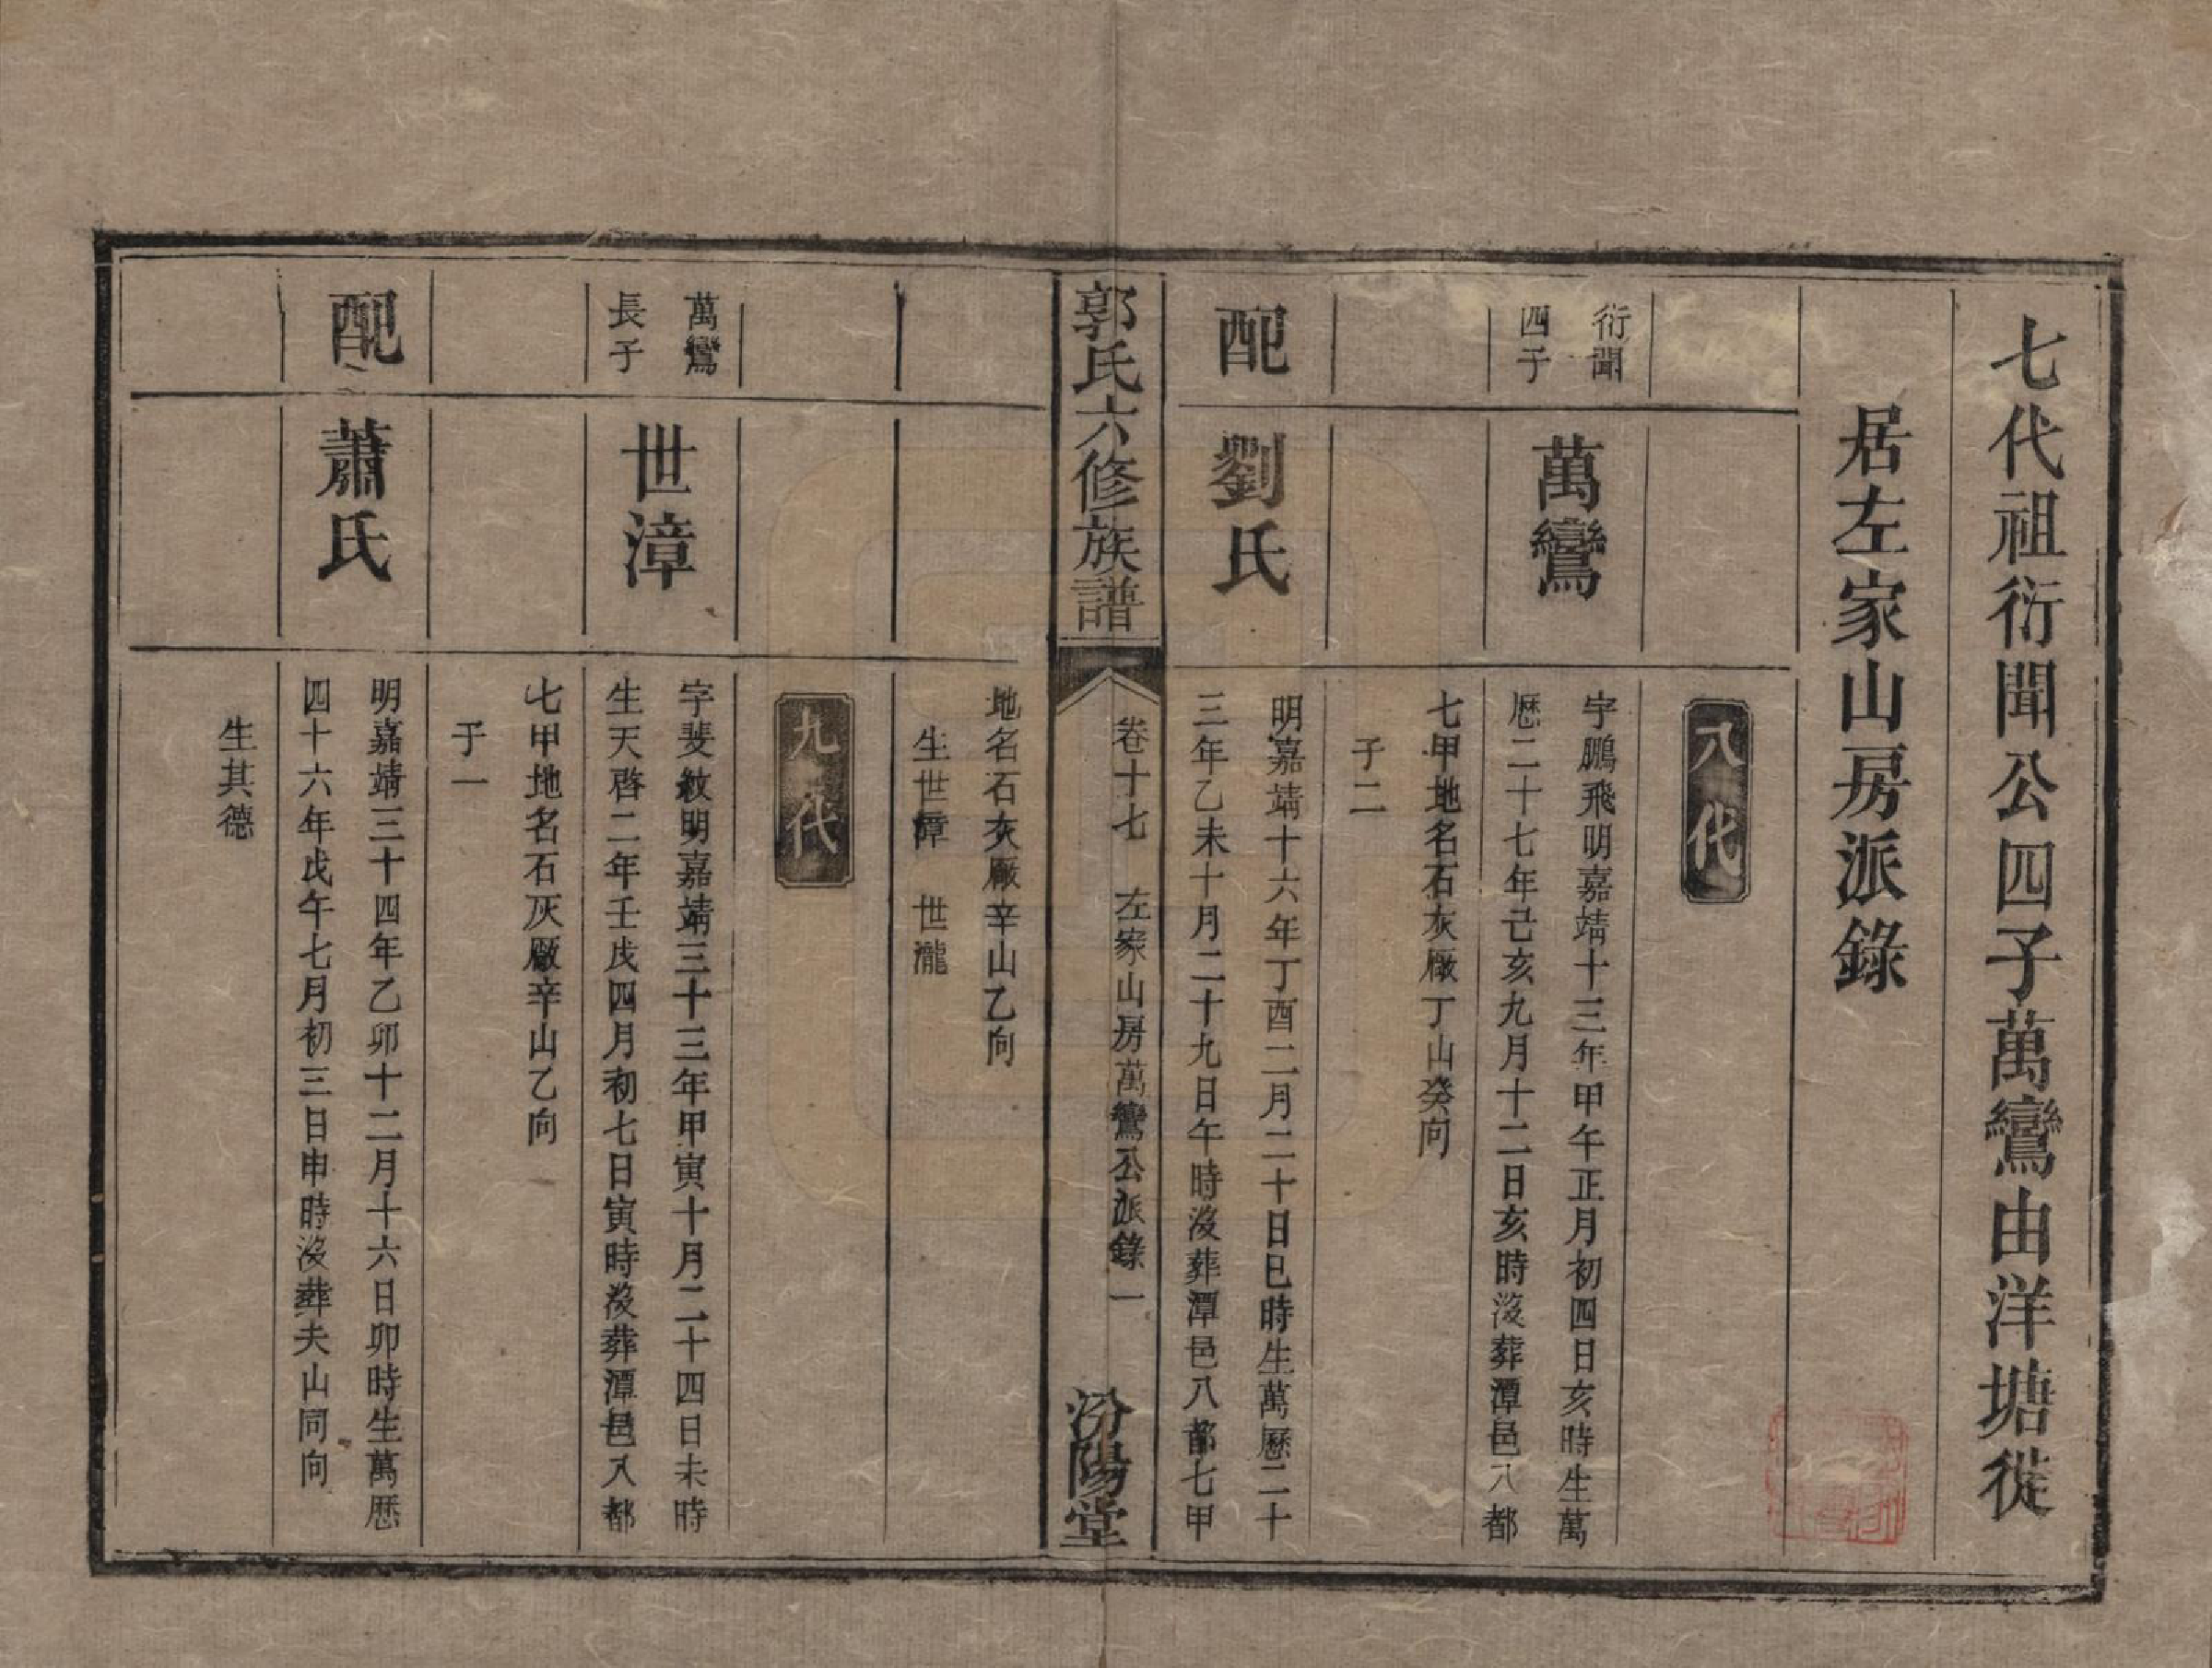 七代祖衍聞公四子萬鸞由洋塘徙
居左家山房派錄
八代
衍聞
四子
萬鸞
字鵬飛明嘉靖十三年甲午正月初四日亥時生萬
歷二十七年己亥九月十二日亥時沒葬潭邑八都
七甲地名石灰廠丁山癸向
子二
配
劉氏
明嘉靖十六年丁酉二月二十日巳時生萬歷二十
三年乙未十月二十九日午時沒葬潭邑八都七甲
郭氏六修族譜
卷十七 左家山房萬鸞公派錄 一
汾陽堂
地名石灰廠辛山乙向
生世漳 世瀧
九代
萬鸞
長子
世漳
字斐紋明嘉靖三十三年甲寅十月二十四日未時
生天啓二年壬戌四月初七日寅時沒葬潭邑八都
七甲地名石灰廠辛山乙向
子一
配
蕭氏
明嘉靖三十四年乙卯十二月十六日卯時生萬歷
四十六年戊午七月初三日申時沒葬夫山同向
生其德